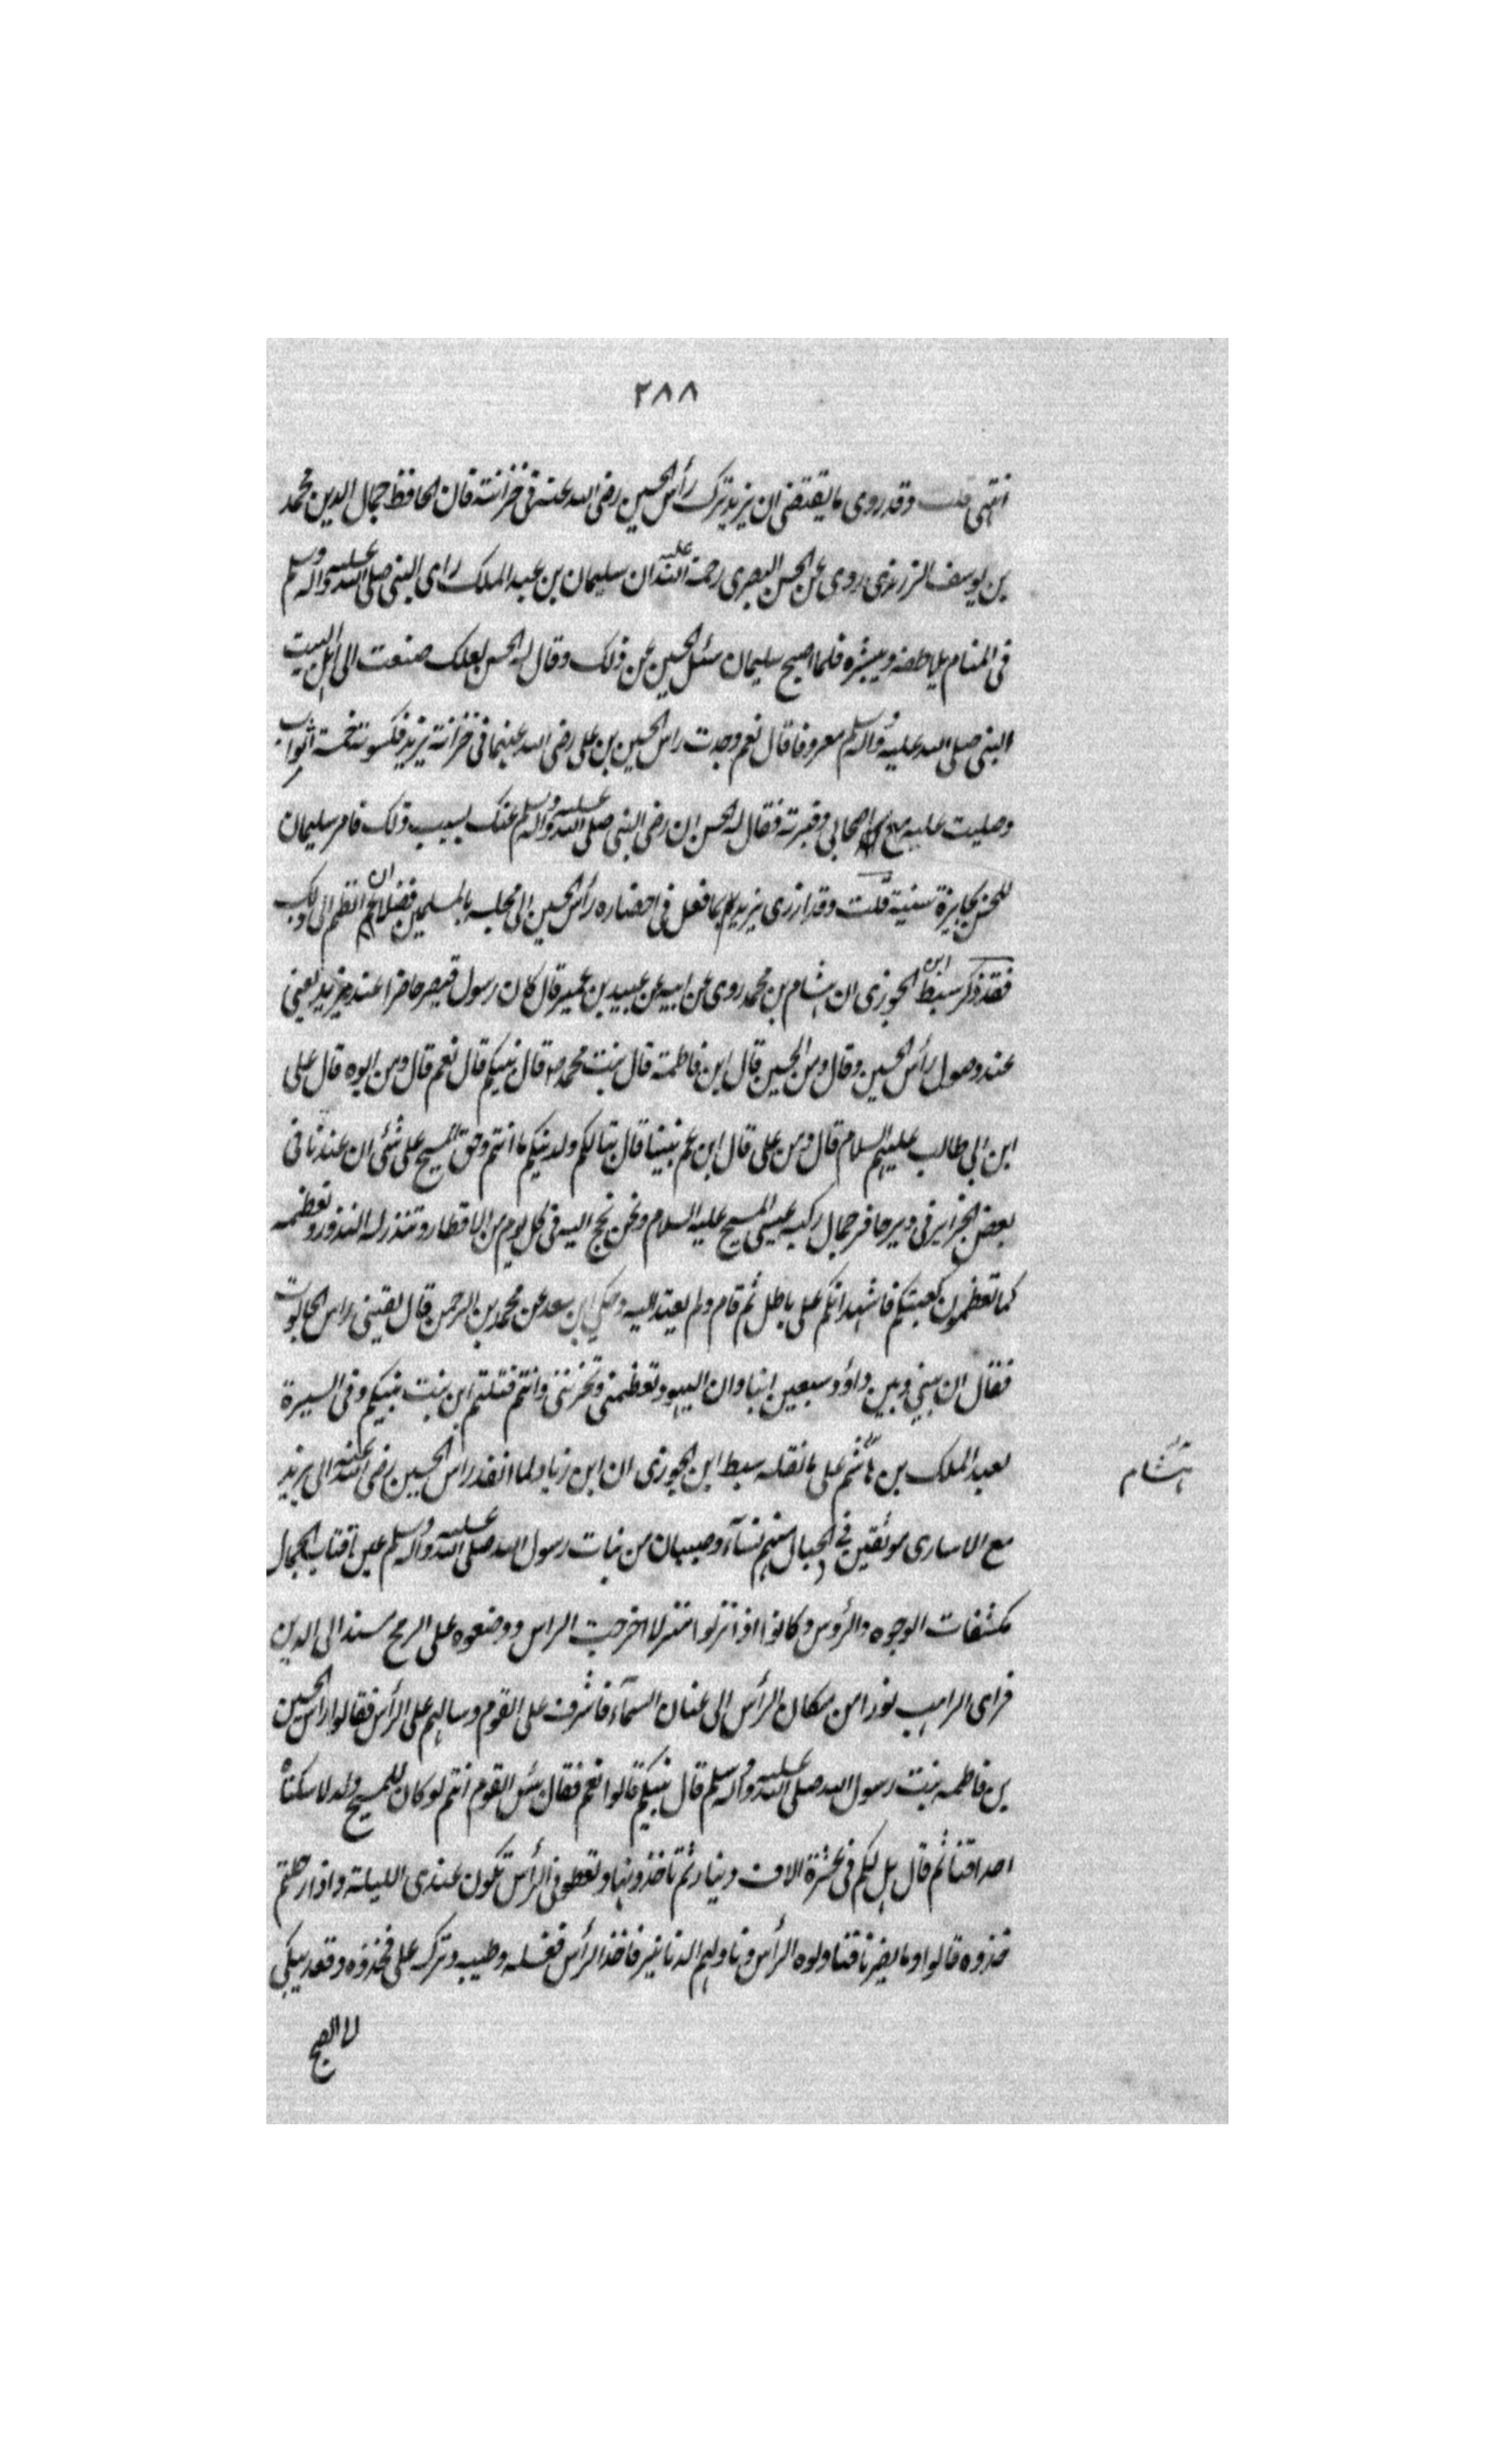 ٢٨٨
انتهى قلت وقد روى ما يقتضى ان يزيد ترك رأس الحسين رضى الله عنه فى خزانته فان الحافظ جمال الدين محمد
بن يوسف الزرندى روى عن الحسن البصرى رحمة الله عليه ان سليمان بن عبد الملك راى النبى صلى الله عليه وآله وسلم
فى المنام يلاطفه ويبشره فلما اصبح سليمان سئل الحسن عن ذلك وقال له الحسن لعلك صنعت الى اهل البيت
النبى صلى الله عليه وآله وسلم معروفا قال نعم وجدت راس الحسين بن على رضى الله عنهما فى خزانة يزيد فكسوته خمسة اثواب
وصليت عليه مع اصحابى وقبرته فقال له الحسن ان رضى النبى صلى الله عليه وآله وسلم عنك بسبب ذلك فامر سليمان
للحسن بجايزة سنية قلت وقد ازرى يزيد بما فعل فى احضاره رأس الحسين الى مجلسه بالمسلمين فضلا ان انظم الى ذلك
فقد ذكر سبط ابن الجوزى ان هشام بن محمد روى عن ابيه عن عبيد بن عمير قال كان رسول قيصر حاضرا عند يزيد يعنى
عند وصول رأس الحسين وقال ومن الحسين قال ابن فاطمة قال بنت محمد ص قال نبيكم قال نعم قال ومن ابوه قال على
ابن ابى طالب عليهم السلام قال ومن على قال ابن عم نبينا قال تبا لكم ولدينكم ما انتم وحق المسيح على شئ ان عندنا فى
بعض الجزاير فى دير حافر حمار ركبه عيسى المسيح عليه السلام ونحن نحج اليه فى كل يوم من الاقطار وتنذر له النذور وتعظمه
كما تعظمون كعبتكم فاشهد انكم على باطل ثم قام ولم يعد اليه وحكى ابن سعد عن محمد بن الرحمن قال لقينى راس الجالوت
فقال ان بينى وبين داؤد سبعين ابنا وان اليهود تعظمنى وتحزننى وانتم قتلتم ابن بنت نبيكم وفى السيرة
لعبد الملك بن هاشم على ما نقله سبط ابن الجوزى ان ابن زياد لما انفذ راس الحسين رضى الله عنه الى يزيد
هشام
مع الاسارى موثقين فى الحبال منهم نساء وصبيان من بنات رسول الله صلى الله عليه وآله وسلم على اقتاب الجمال
مكشفات الوجوه والرؤس وكانوا اذا نزلوا منزلا اخرجت الراس ووضعوه على الرمح مسندا الى الدير
فراى الراهب نورا من مكان الرأس الى عنان السماء فاشرف على القوم وسالهم على الرأس فقالوا راس الحسين
بن فاطمه بنت رسول الله صلى الله عليه وآله وسلم قال نبيكم قالوا نعم فقال بئس القوم انتم لو كان للمسيح ولد لاسكناه
احداقنا ثم قال هل لكم فى عشرة الاف دينار ثم تاخذونها وتعطونى الرأس تكون عندى الليلة واذا رحلتم
خذوه قالوا وما يضرنا فناولوه الراس وناولهم الدنانير فاخذ الرأس فغسله وطيبه وتركه على فخذه وقعد يبكى
الى الصبح